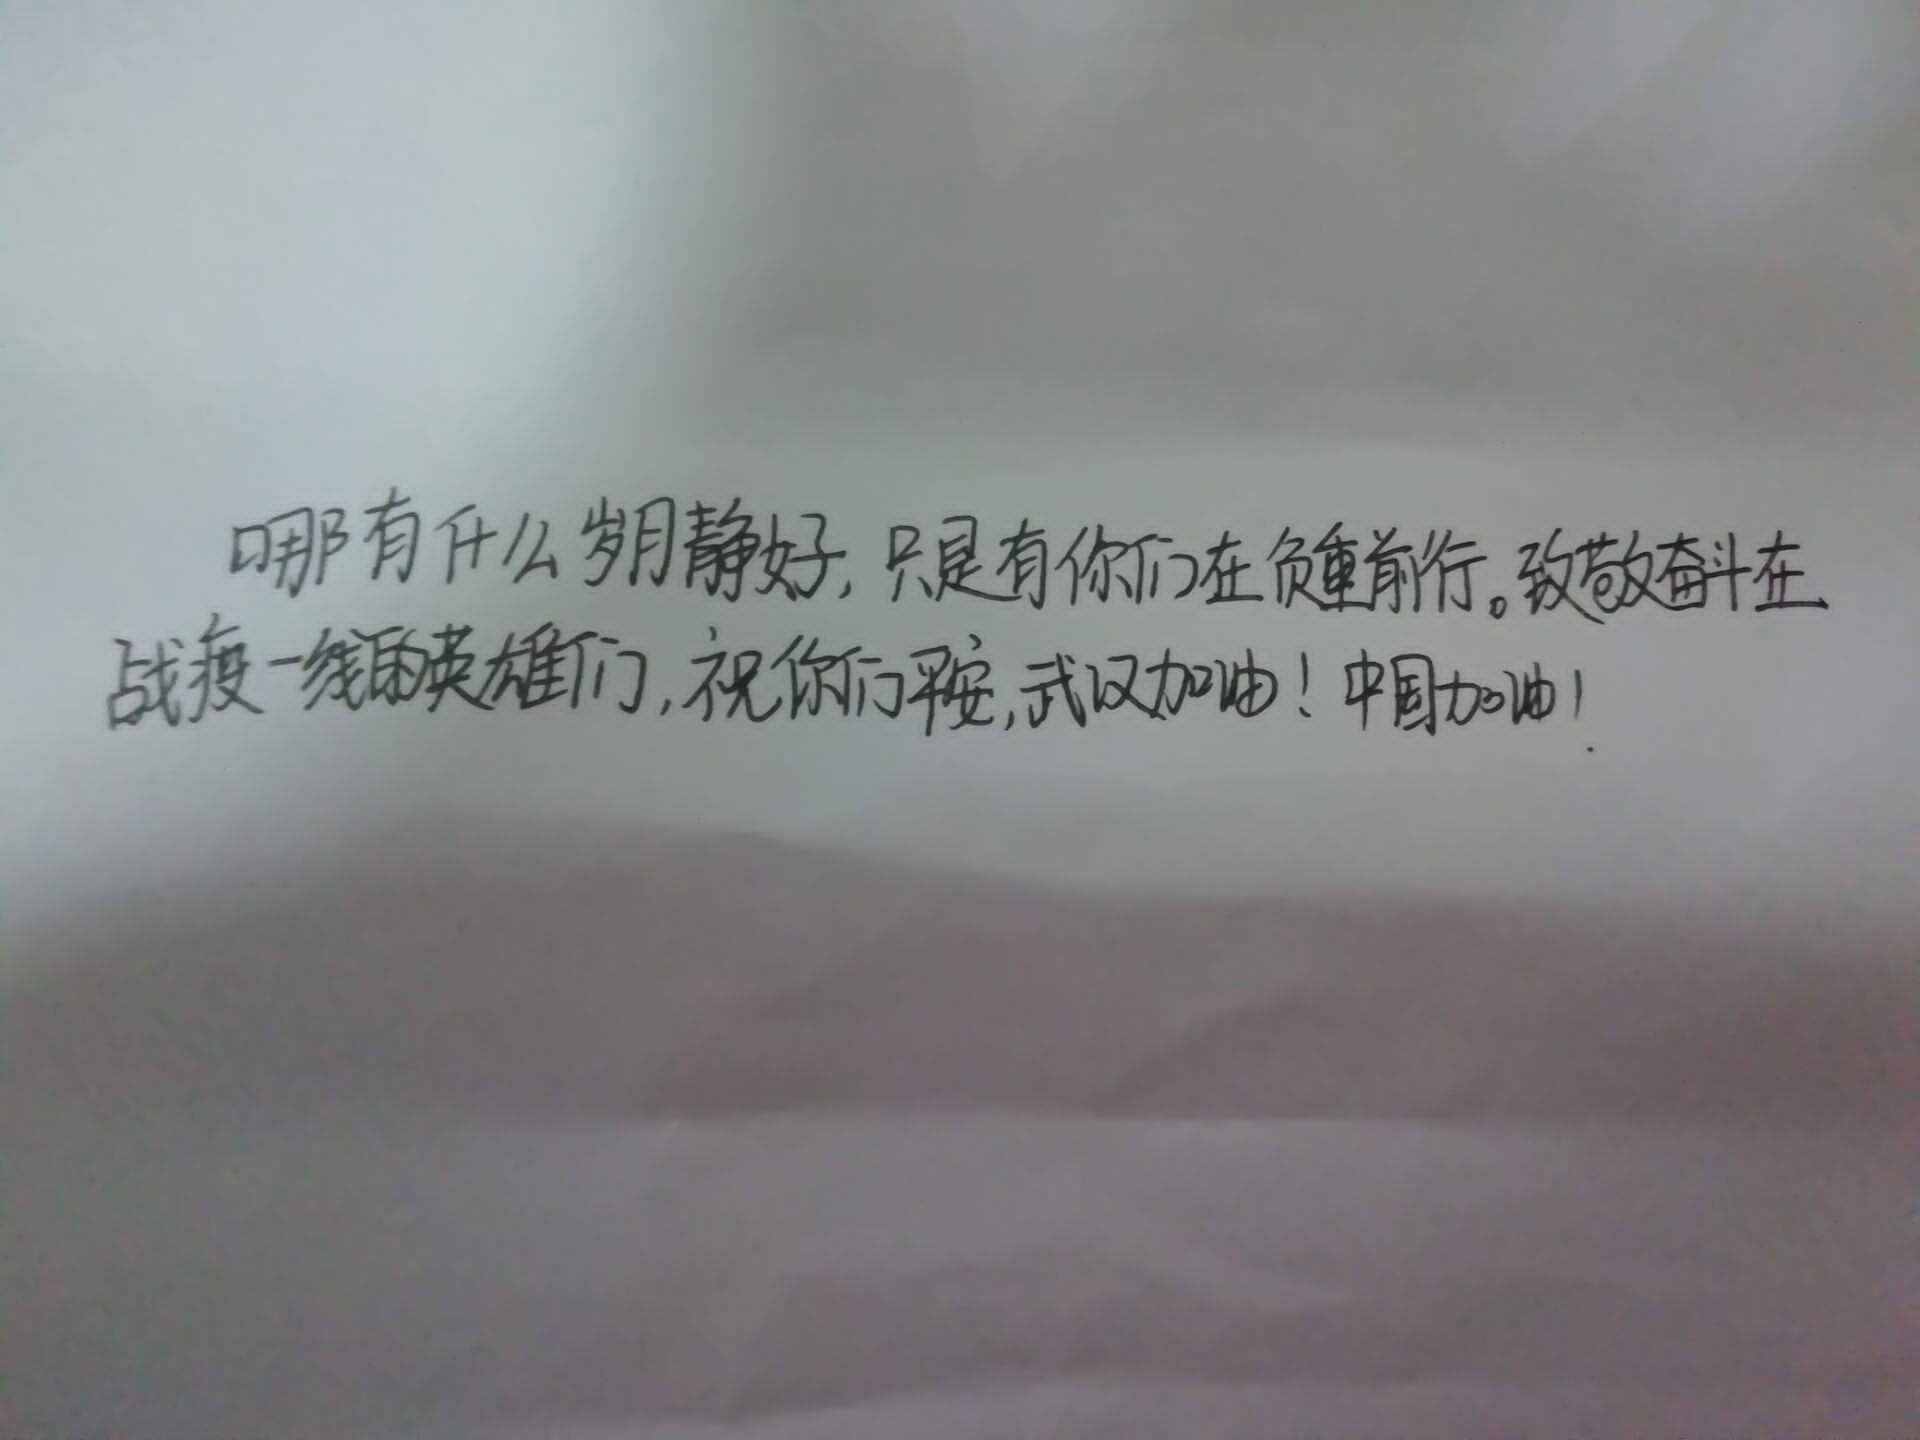 哪有什么岁月静好,只是有你们在负重前行。致敬奋斗在
战疫一线的英雄们,祝你们平安,武汉加油!中国加油!